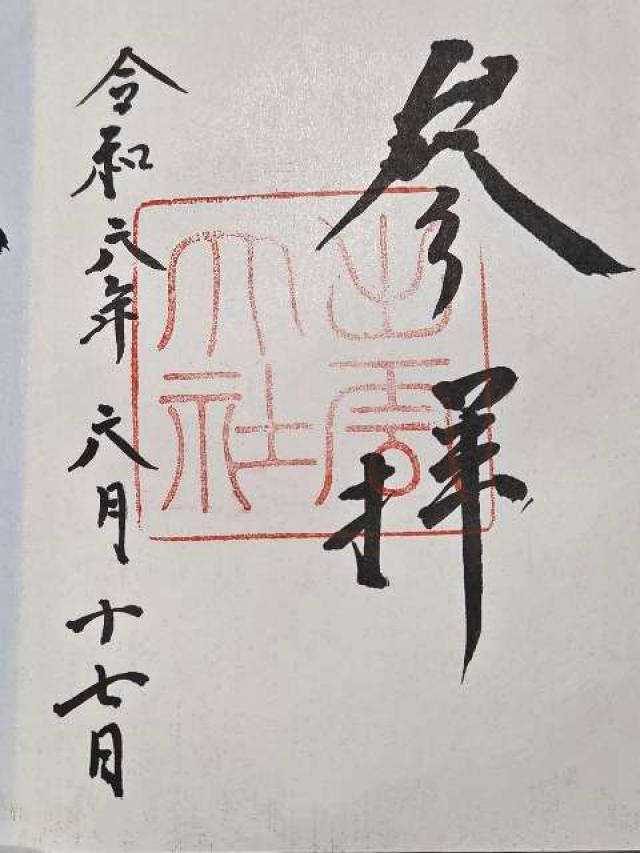 参拝
出雲
大社
令和六年六月十七日